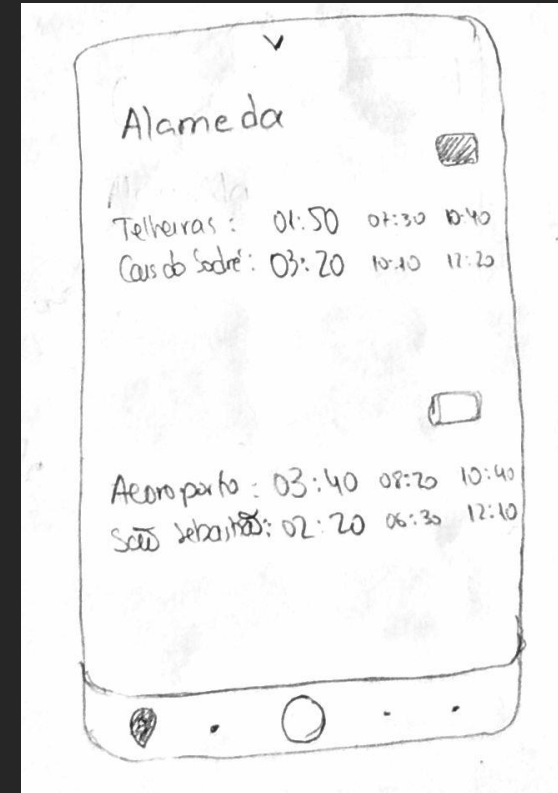 Alameda
Telheiras : 01:50 07:30 10:40
Cais do Sodré : 03:20 10:10 12:20
Aeroporto : 03:40 08:20 10:40
São Sebastião : 02:20 06:30 12:10